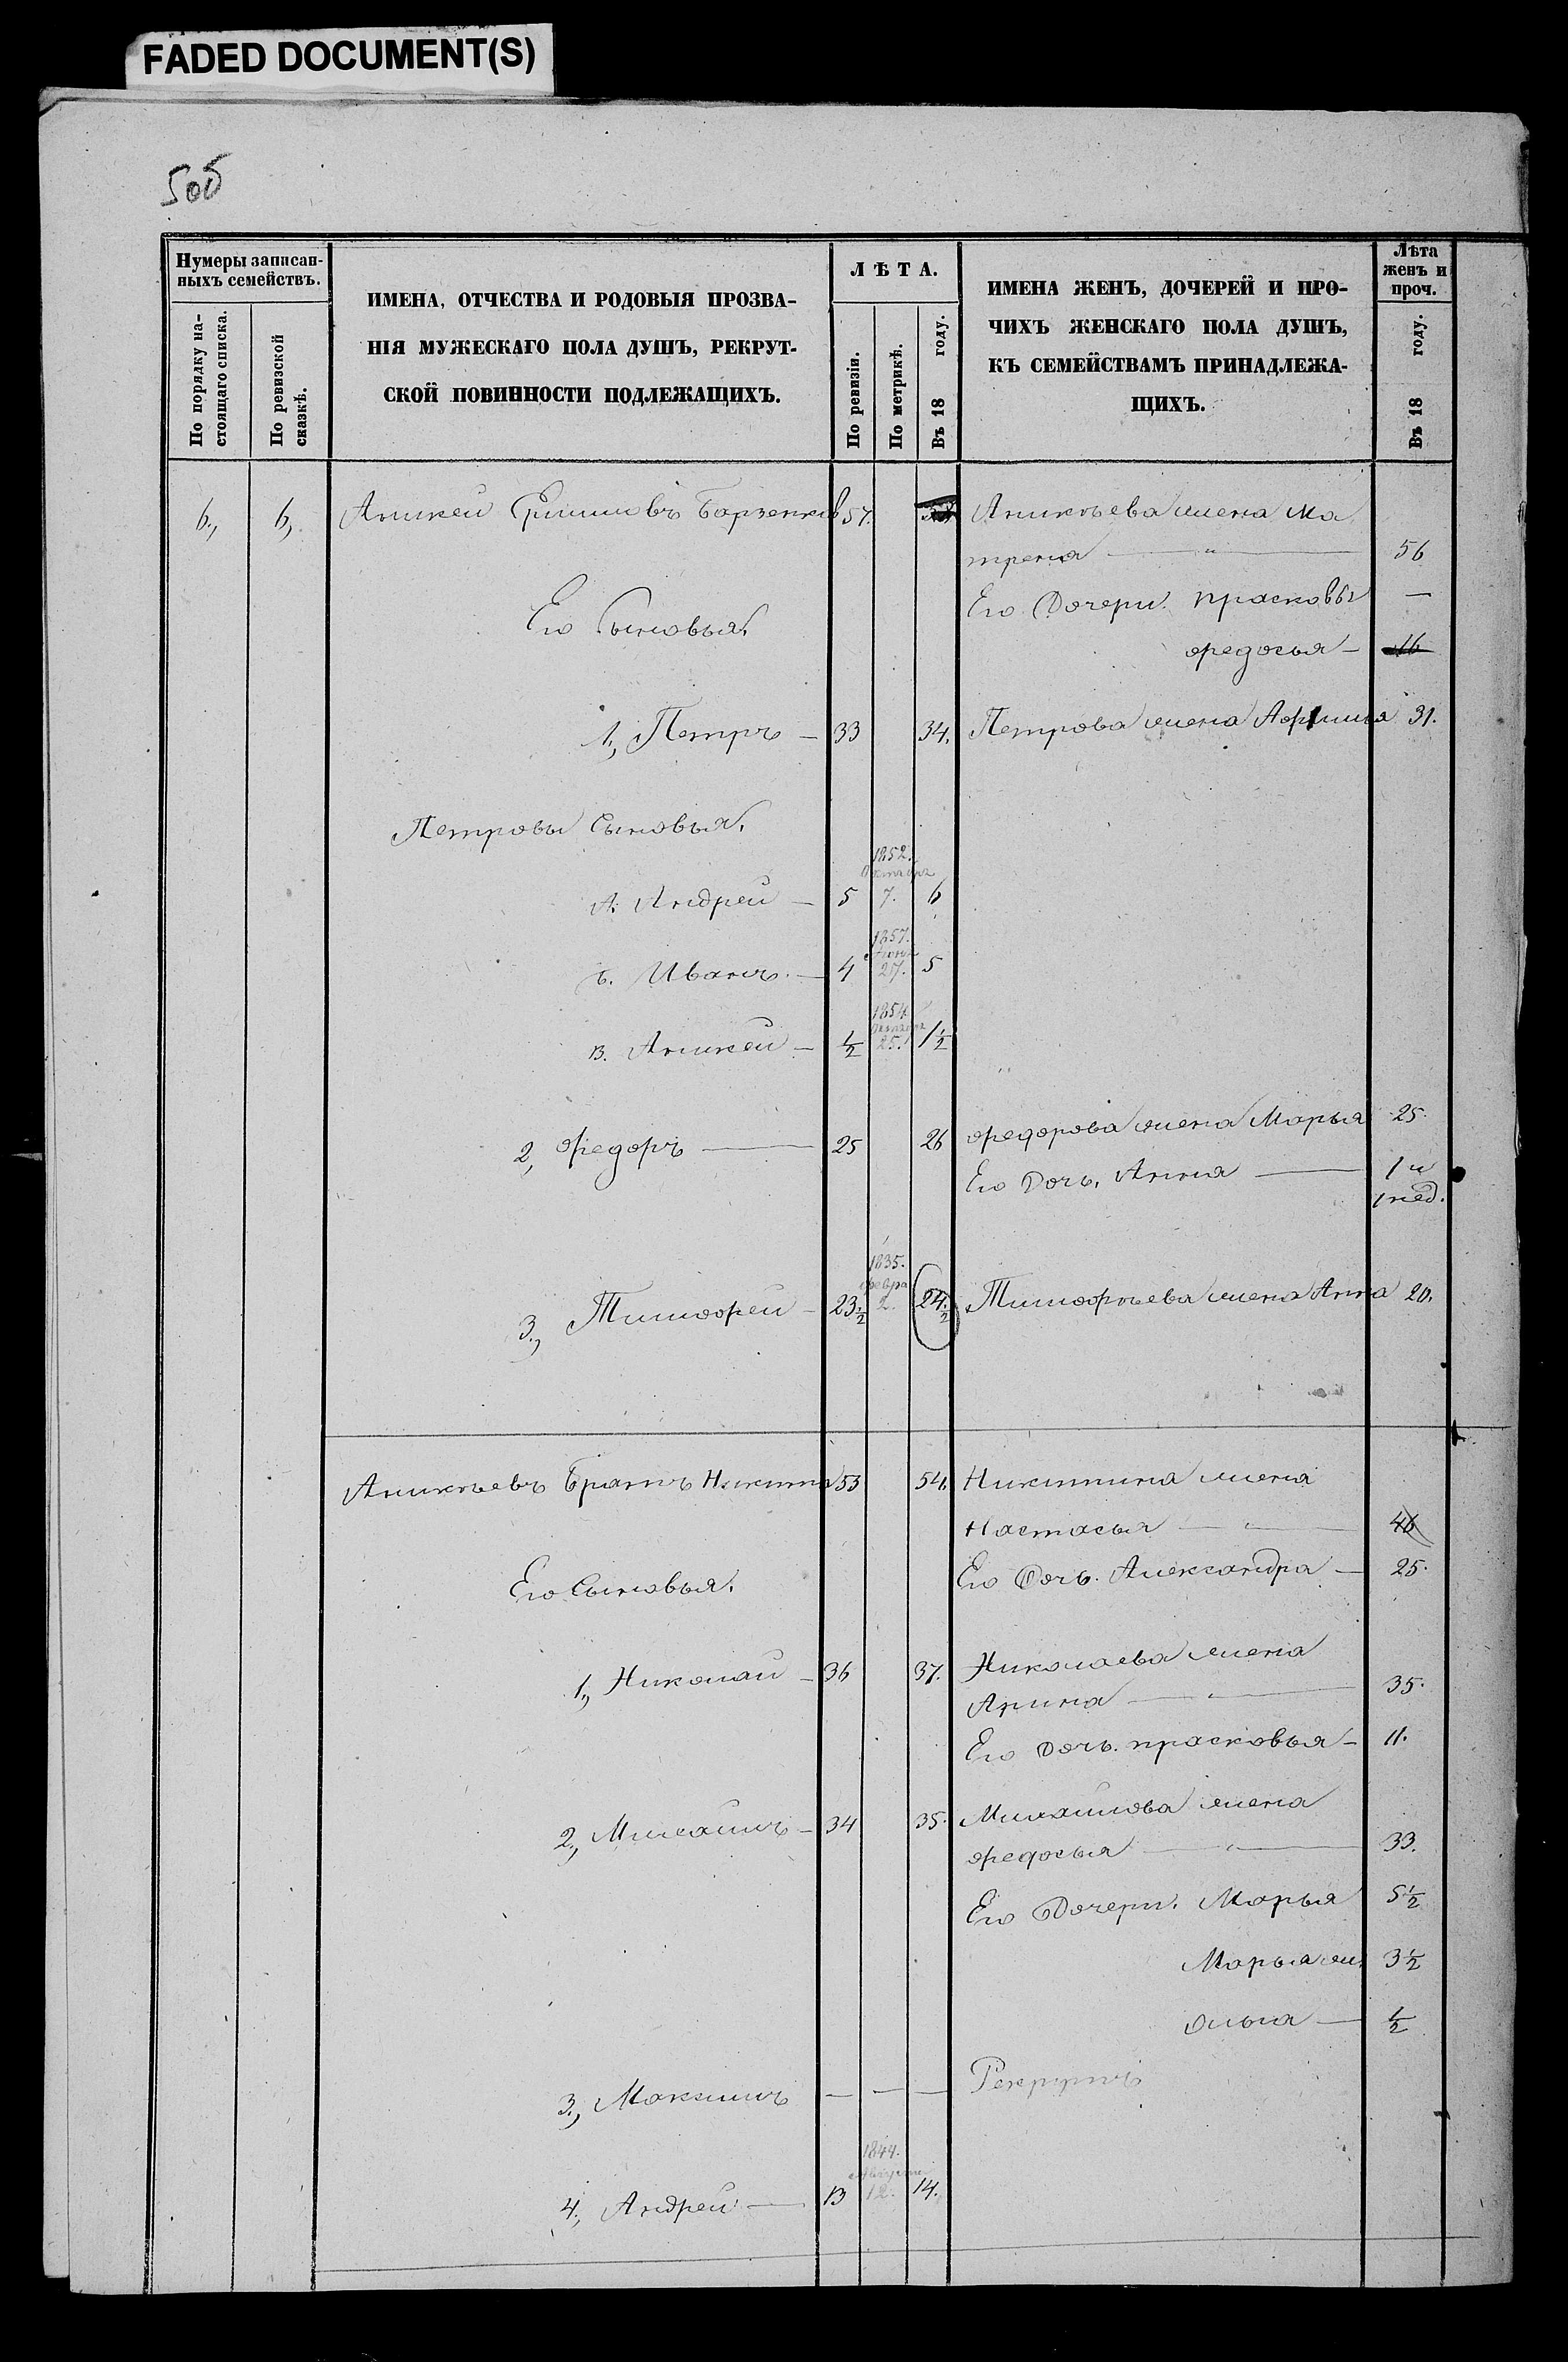 FADED DOCUMENT(S)
50б
Нумеры записан-
ныхъ семействъ.
По порядку на-
стоящаго списка.
По ревизской
сказкѣ.
ИМЕНА, ОТЧЕСТВА И РОДОВЫЯ ПРОЗВА-
НІЯ МУЖЕСКАГО ПОЛА ДУШЪ, РЕКРУТ-
СКОЙ ПОВИННОСТИ ПОДЛЕЖАЩИХЪ.
ЛѢТА.
По ревизіи.
По метрикѣ.
Въ 18 году.
ИМЕНА ЖЕНЪ, ДОЧЕРЕЙ И ПРО-
ЧИХЪ ЖЕНСКАГО ПОЛА ДУШЪ,
КЪ СЕМЕЙСТВАМЪ ПРИНАДЛЕЖА-
ЩИХЪ.
Лѣта
женъ и
проч.
Въ 18 году.
6., 6, Аникей Борзенковъ 57. Аникѣева жена Ма
трена — " — 56
Его Дочери. Прасковья —
Его Сыновья.
Ѳедосья — 16
1., Петръ — 33 34. Петрова жена 31.
Петровы Сыновья.
1852.
А. Андрей — 5 7. 6
1857.
Б. Иванъ. — 4 27. 5
1854.
В. Аникей — ½ 25. 1½
2, Ѳедоръ — 25 26 Ѳедорова жена Марья 25.
Его Дочь. Анна — 1 и
1 нед.
1835.
Февра
3., Тимоѳей — 23½ 2. 24½ Тимоѳѣева жена Анна 20.
Аникѣевъ Братъ Никита 53 54. Никитина жена
Настасья — " — 46
Его Дочь. Александра — 25.
Его Сыновья.
1., Николай — 36 37. Николаева жена
Арина — " — 35.
Его Дочь. Прасковья — 11.
2., Михаилъ — 34 35. Михаилова жена
Ѳедосья — " — 33.
Его Дочери. Марья 5½
Марья 3½
Ольга — ½
3., Максимъ — — — Рекрутъ
1844.
Августа
4., Андрей — 13 12. 14.